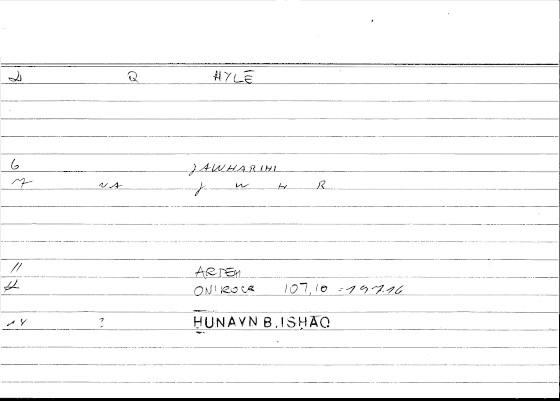 Q HYLĒ
6 JAWHARIHI
NA J W H R
11 ARTEM
ONIROCR 107,10 = 197.16
14 ? ḤUNAYN B. ISḤĀQ